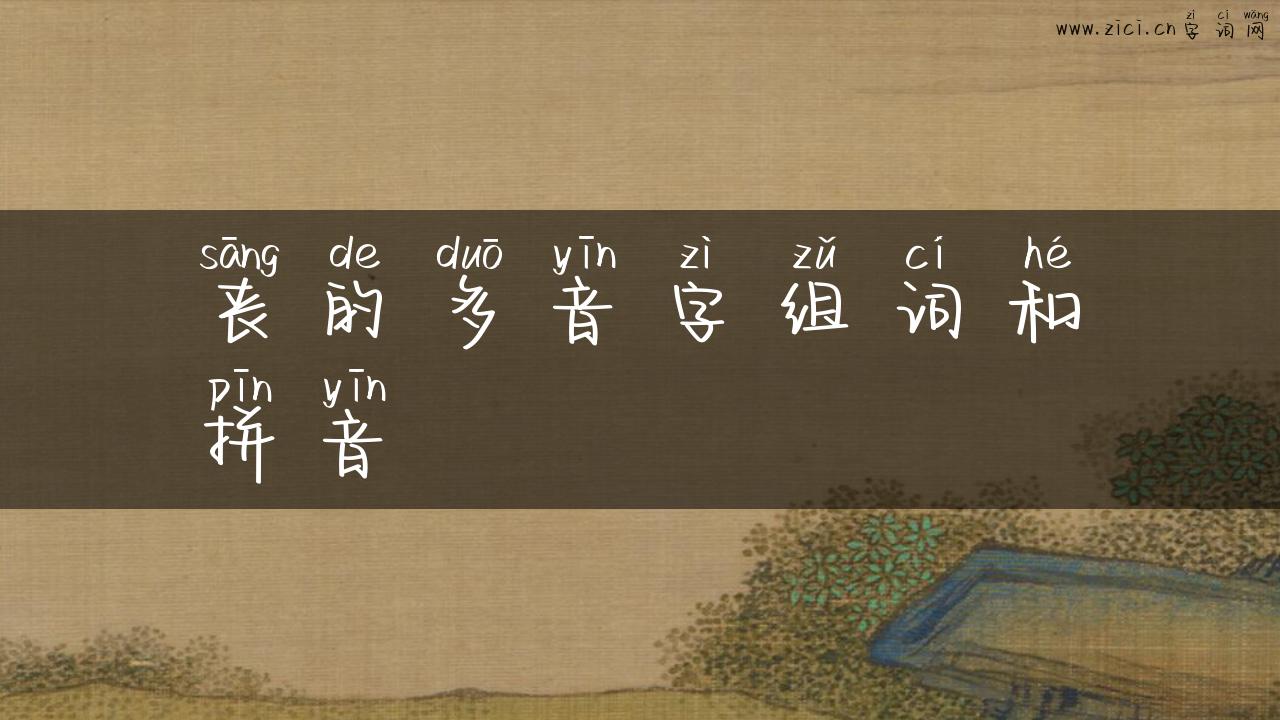 zì cí wǎng
www.zici.cn字词网
sāng de duō yīn zì zǔ cí hé
丧的多音字组词和
pīn yīn
拼音